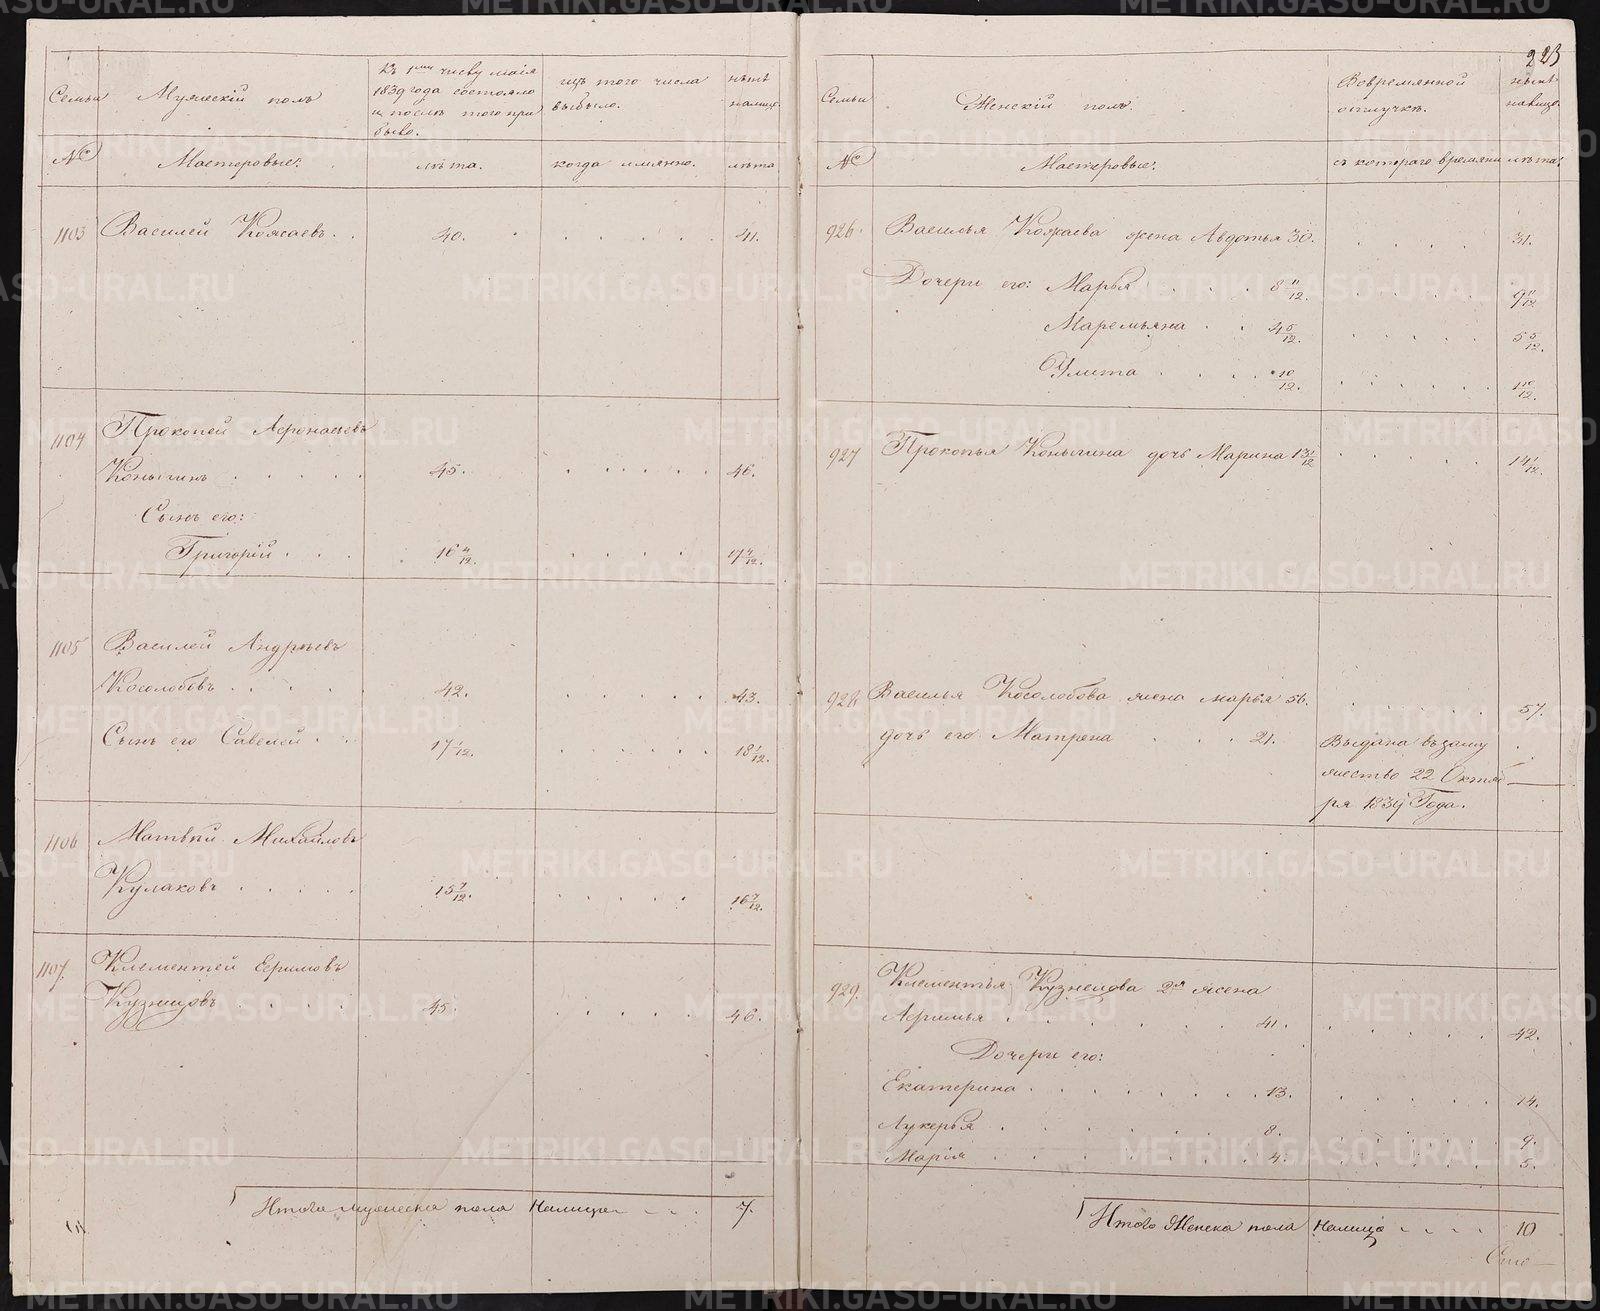 223
Семьи
Мужескій полъ
Къ 1му числу маія
1839 года состояло
и после того при
было.
изъ того числа
выбыло.
нынѣ
налицо.
№
Мастеровые:
лѣта.
когда имянно.
лѣта
1103
Василей Кожаевъ . .
40.
41.
1104
Прокопей Афонасьевъ
Коныгинъ . . . . .
45.
46.
Сынъ его:
Григорій . . .
16 4/12.
17 4/12.
1105
Василей Андрѣевъ
Косолобовъ . . . . .
42.
43.
Сынъ его Савелей . . .
17 1/12.
18 1/12.
1106
Матвѣй Михайловъ
Кулаковъ . . . . .
15 7/12.
16 7/12.
1107.
Клементей Ефимовъ
Кузнецовъ . . . . .
45.
46.
Итого мужеска пола Налицо . . .
7.
Семьи
Женскій полъ.
Вовремянной
отлучкѣ.
нынѣ
налицо.
№
Мастеровые:
съ котораго времяни
лѣта:
926.
Василья Кожаева жена Авдотья 30.
31.
Дочери его: Марья . . . . 8 11/12.
9 11/12
Маремьяна . . 4 5/12.
5 5/12.
Улита . . . . 10/12.
1 10/12.
927
Прокопья Коныгина дочь Марина 13 1/12
14 1/12.
928.
Василья Косолобова жена марья 56.
57.
дочь его Матрена . . . 21.
Выдана въ заму
жество 22 Октяб
ря 1839 Года.
929.
Клементья Кузнецова 2я жена
Афимья . . . . . . . 41.
42.
Дочери его:
Екатерина . . . . . . . 13.
14.
Лукерья . . . . . . . 8.
9.
Марія . . . . . . . 4.
5.
Итого Женска пола Налицо . . . .
10
METRIKI.GASO-URAL.RU